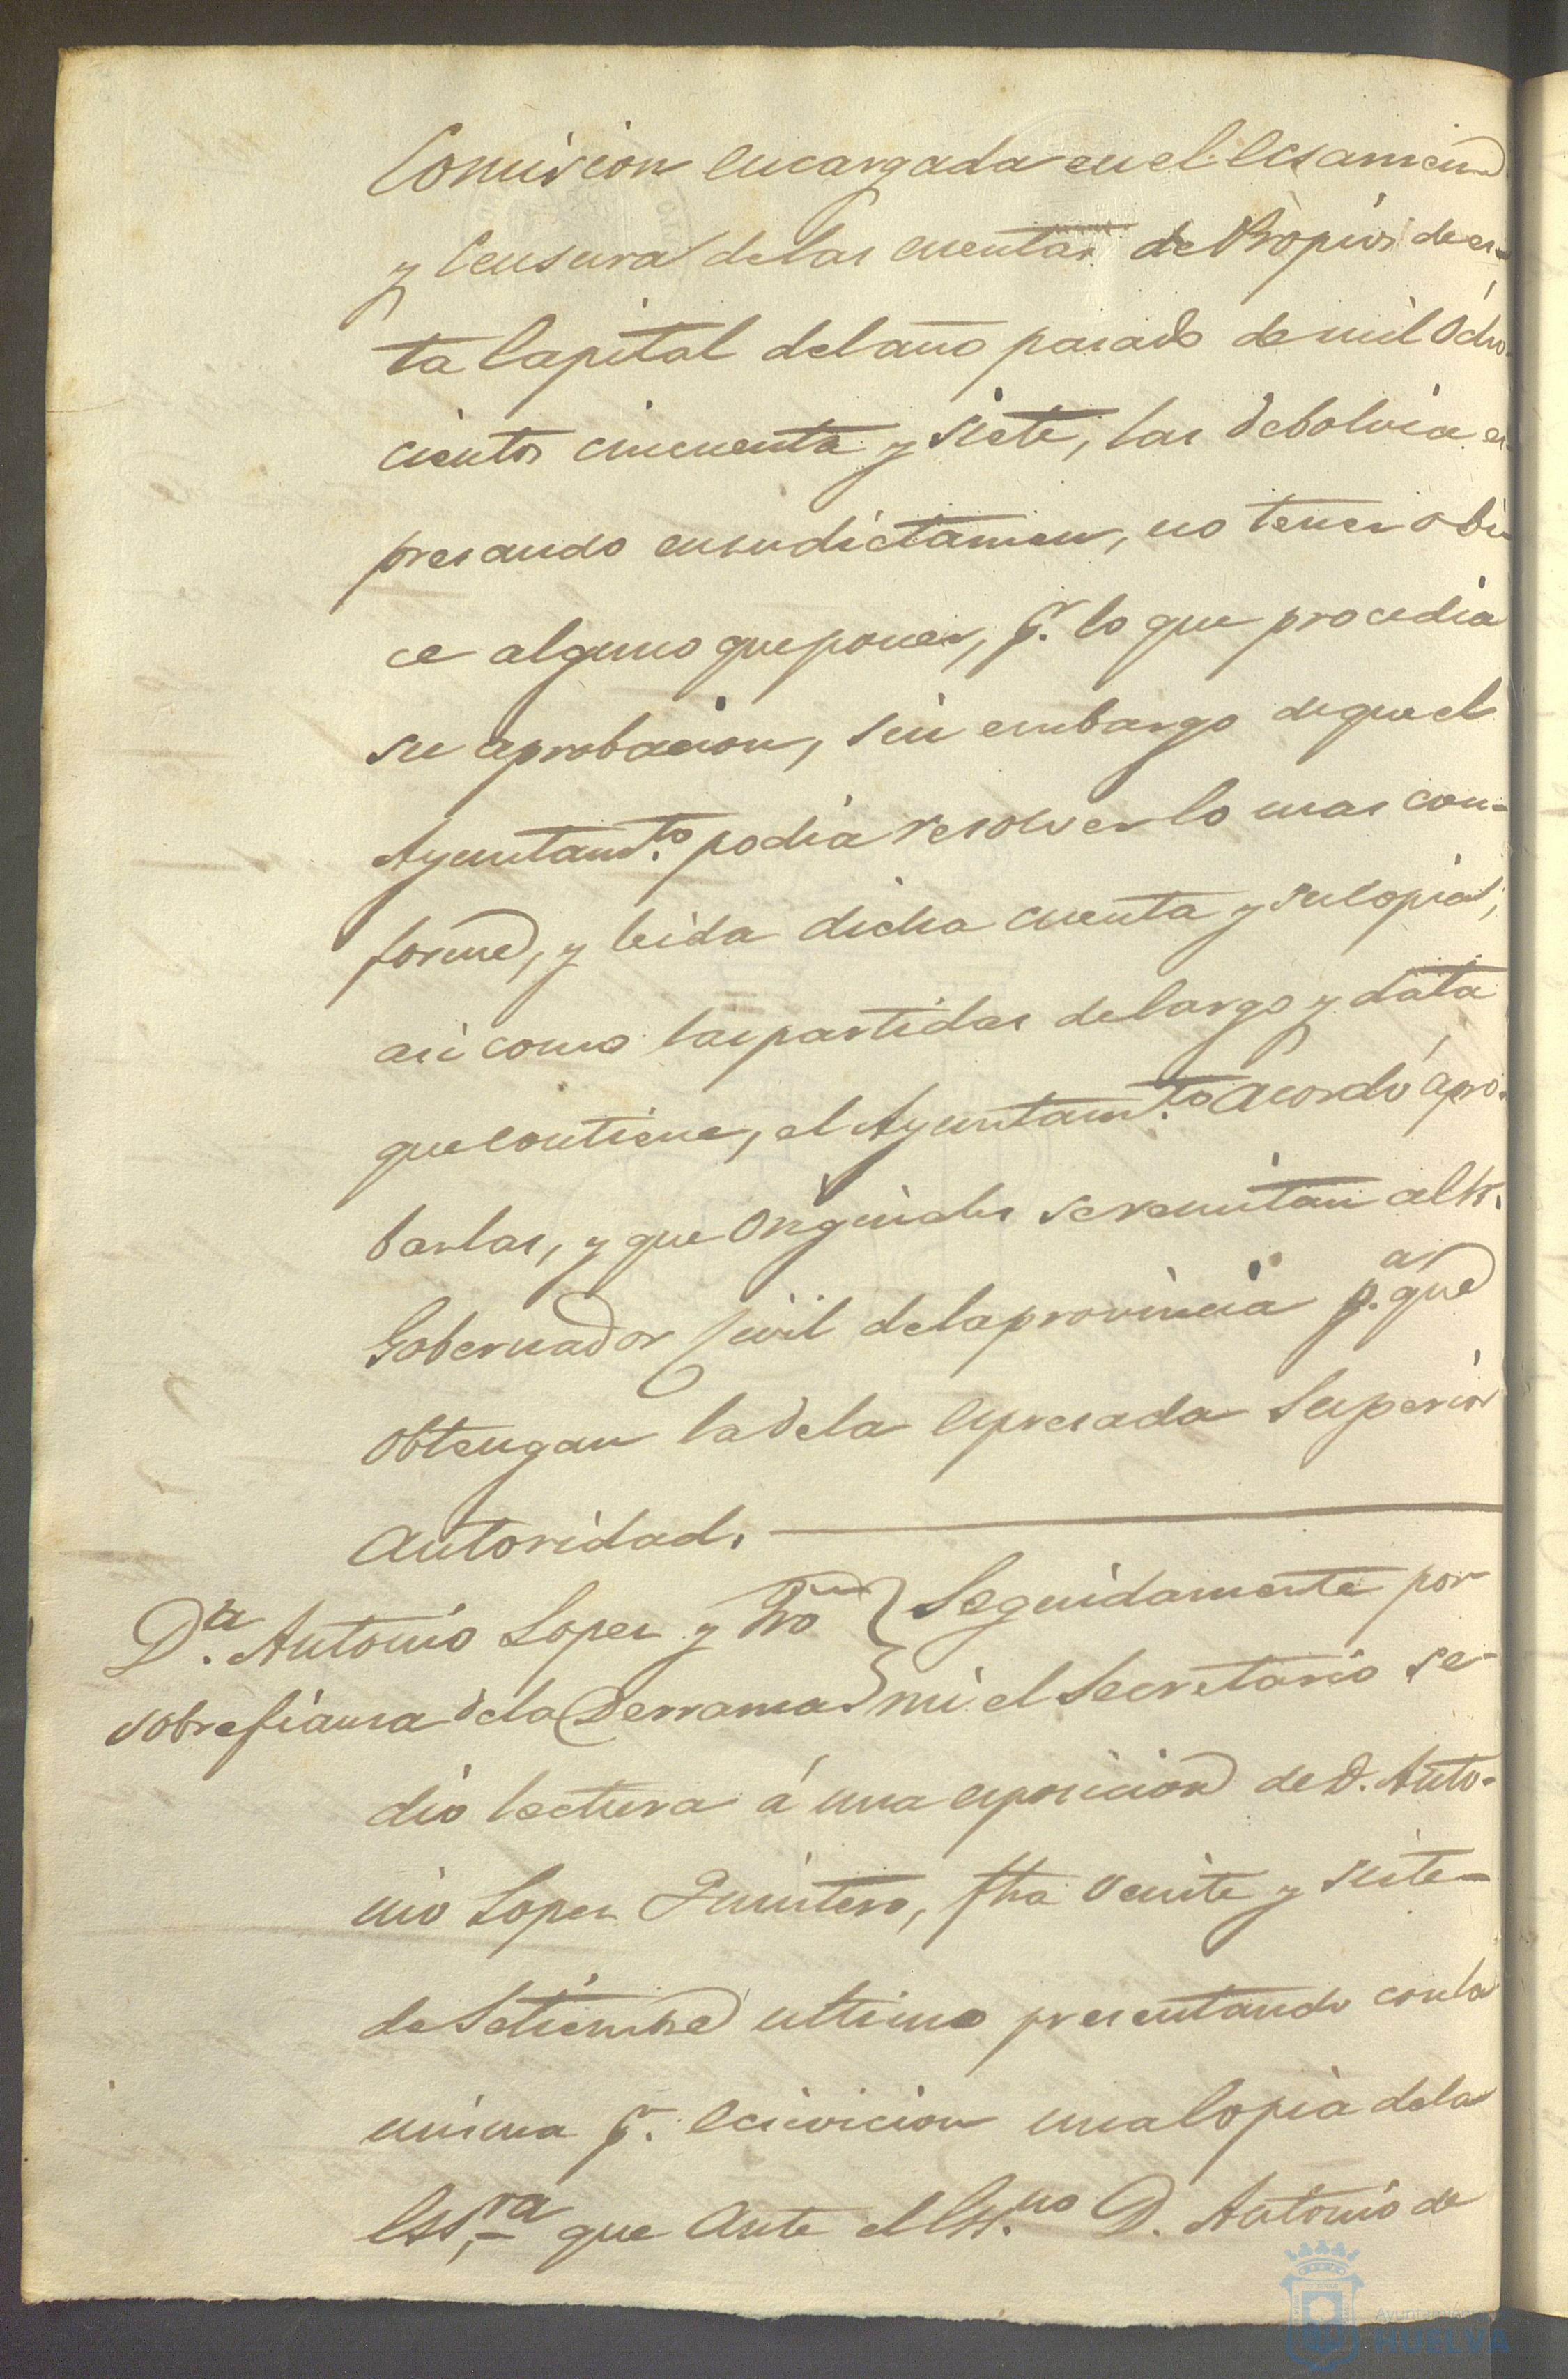 Comision encargada en el ecsamen
y Censura de las cuentas de Propios de es-
ta Capital del año pasado de mil Ocho
cientos cincuenta y siete, las debolvia es
presando en su dictamen, no tener obi
ce alguno que poner, p.r lo que procedia
su aprobacion, sin embargo de que el
Ayuntam.to podia resolver lo mas con-
forme, y leida dicha cuenta y su copia,
asi como las partidas de Cargo y data
que contiene, el Ayuntam.to acordó apro-
barlas, y que originales se remitan al Sr.
Gobernador Civil de la provincia p.a que
obtengan la de la espresada Superior
Autoridad.
D.n Antonio Lopez y Qro
sobre fianza de la Derrama
Seguidamente por
mi el Secretario se
dió lectura á una esposicion de D. Anto-
nio Lopez Quintero, fha veinte y siete
de Setiembre ultimo presentando con la
misma p.r ecsivicion una Copia de la
Ess.ra que Ante el Ess.no D. Antonio de
Ayuntamiento
HUELVA